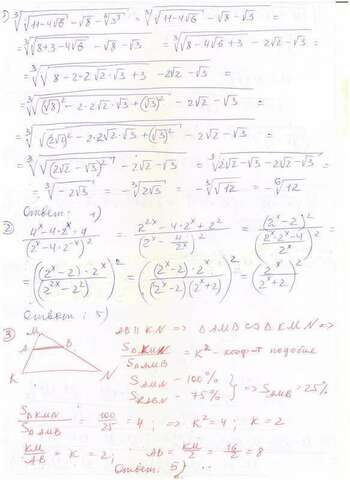 1) ∛(√(11-4√6) - √8 - ⁴√3²) = ∛(√(11-4√6) - √8 - √3) =
= ∛(√(8+3-4√6) - √8 - √3) = ∛(√(8-4√6+3) - 2√2 - √3) =
= ∛(√(8-2·2√2·√3+3) - 2√2 - √3) =
= ∛(√((√8)²-2·2√2·√3+(√3)²) - 2√2 - √3) =
= ∛(√((2√2)²-2·2√2·√3+(√3)²) - 2√2 - √3) =
= ∛(√((2√2-√3)²) - 2√2 - √3) = ∛(2√2-√3-2√2-√3) =
= ∛(-2√3) = -∛(2√3) = -∛(√12) = -⁶√12
Ответ: 1)
2) (4ˣ-4·2ˣ+4)/(2ˣ-4·2⁻ˣ)² = (2²ˣ-4·2ˣ+2²)/(2ˣ-4/2ˣ)² = (2ˣ-2)²/((2ˣ·2ˣ-4)/2ˣ)² =
= ((2ˣ-2)·2ˣ/(2²ˣ-2²))² = ((2ˣ-2)·2ˣ/((2ˣ-2)(2ˣ+2)))² = (2ˣ/(2ˣ+2))²
Ответ: 5)
3) M A B K N
AB || KN => ΔAMB ∾ ΔKMN =>
S ΔKMN / S ΔAMB = K² - коэфит подобие
- 100%
- 75% } => S AMB = 25%
S ΔKMN / S ΔAMB = 100/25 = 4 ; => K² = 4 ; K = 2
KM/AB = K = 2; AB = KM/2 = 16/2 = 8
Ответ: 5)